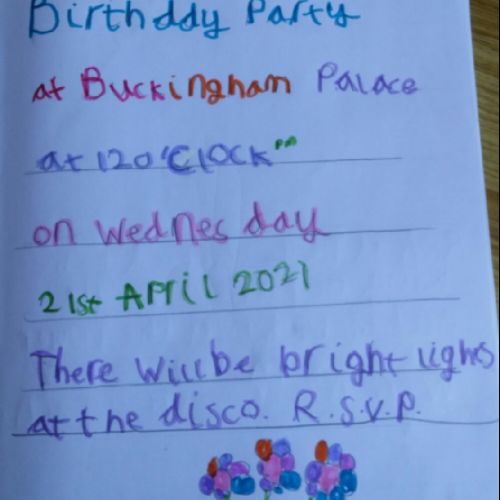 Birthday Party
at Buckingham Palace
at 12 O'Clock pm
on Wednesday
21st April 2021
There will be bright lights
at the disco. R.S.V.P.